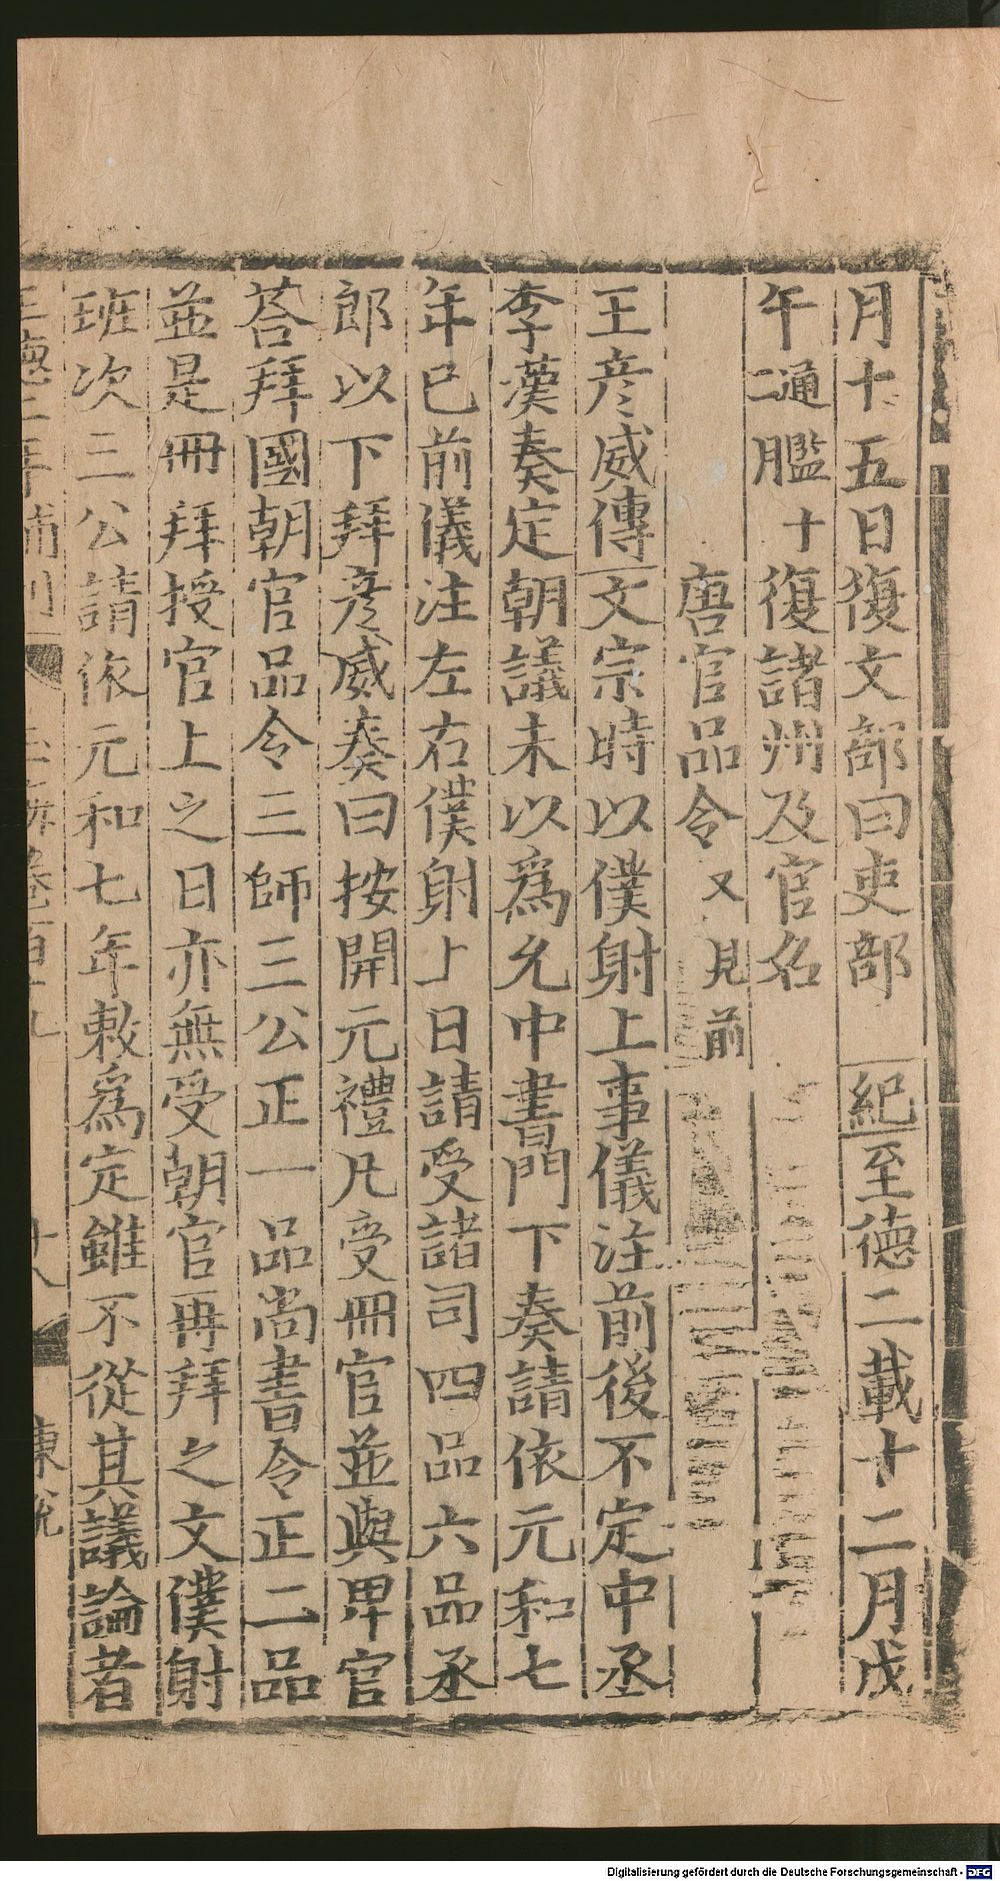 月十五日復文部曰吏部　紀至德二載十二月戊
午通鑑十二復諸州及官名
唐官品令又見前
王彦威傳文宗時以僕射上事儀注前後不定中丞
李漢奏定朝議未以爲允中書門下奏請依元和七
年已前儀注左右僕射上日請受諸司四品六品丞
郎以下拜彦威奏曰按開元禮凡受冊官並與卑官
荅拜國朝官品令三師三公正一品尚書令正二品
並是冊拜授官上之日亦無受朝官再拜之文僕射
班次三公請依元和七年敕爲定雖不從其議論者
Digitalisierung gefördert durch die Deutsche Forschungsgemeinschaft - DFG